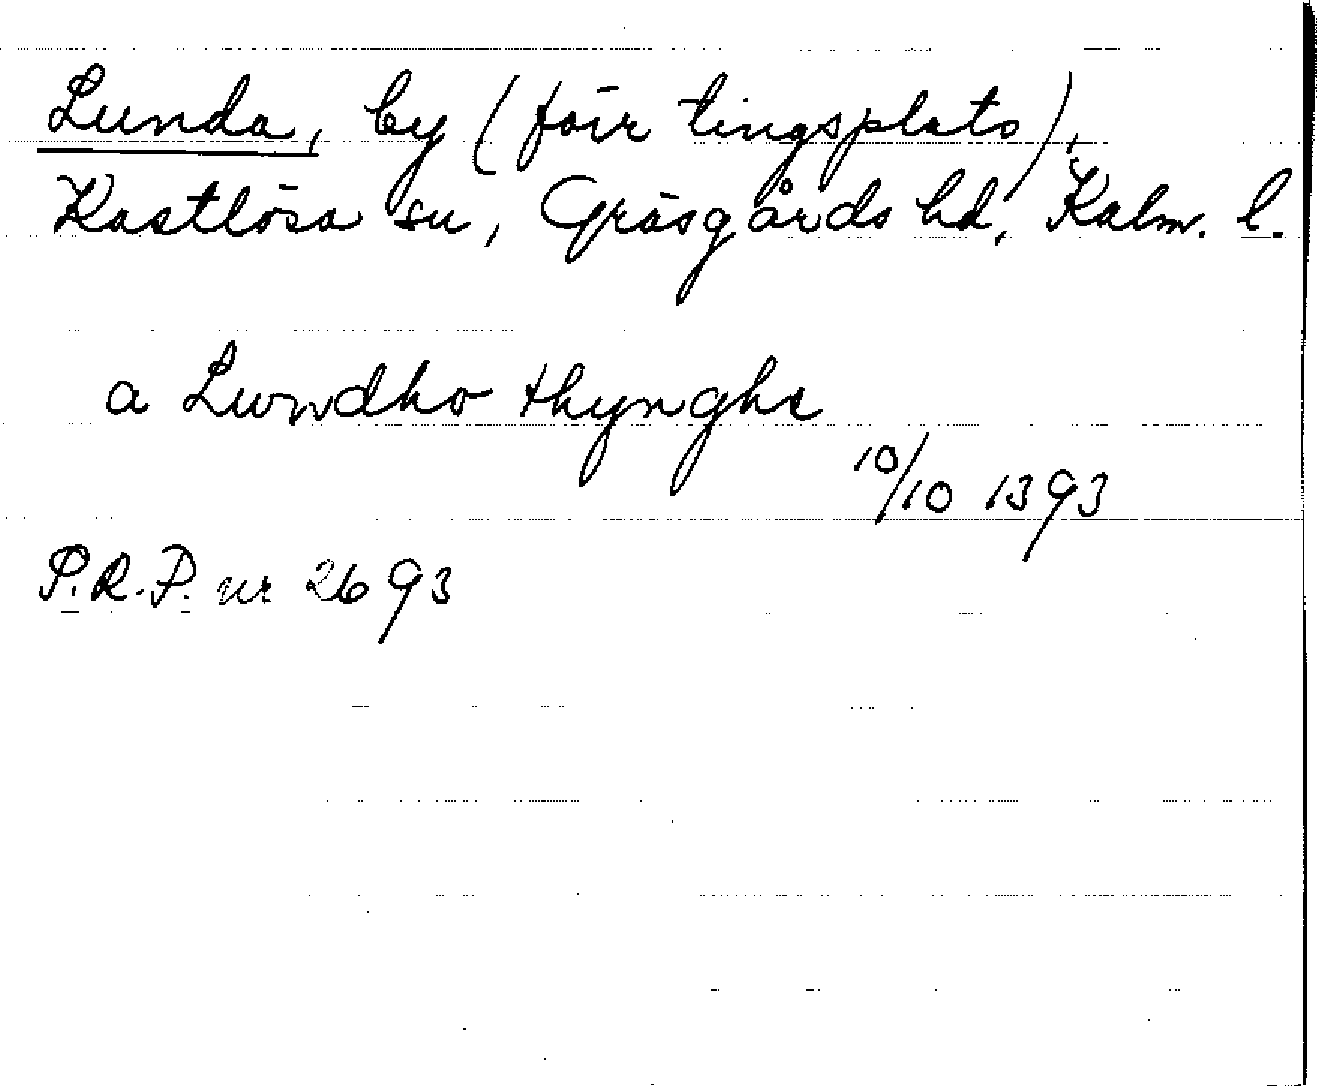 Lunda, by (förr tingsplats),
Kastlösa sn, Gräsgårds hd, Kalm. l.
a Lundho thynghe
10/10 1393
P.R.P. nr 2693